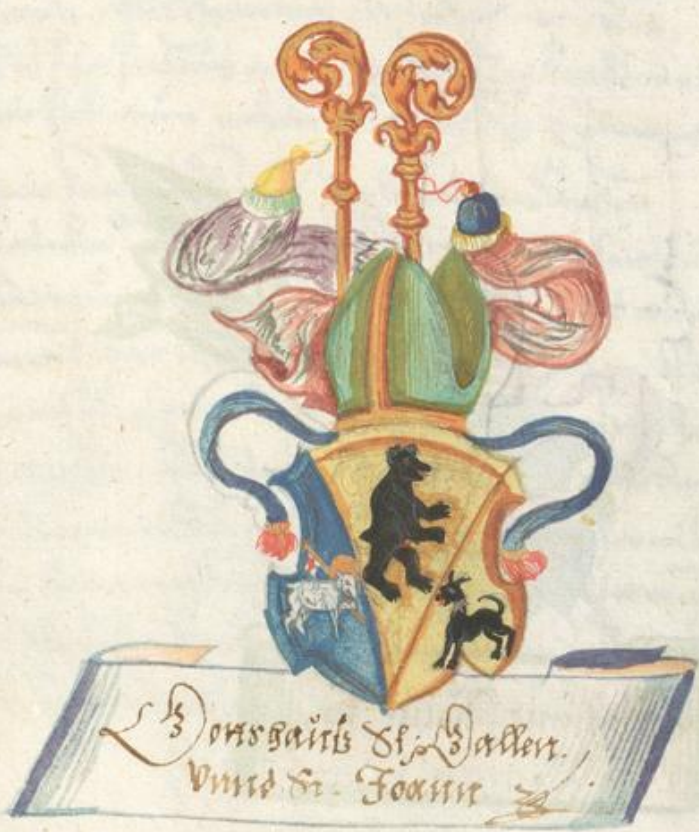 Gottshauß St: Gallen.
Vnnd St. Joann